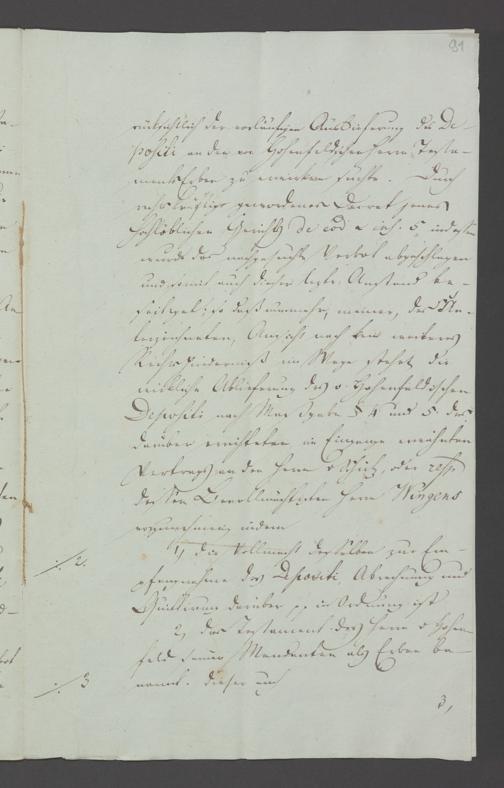 91
rücksichtlich der vorläufigen Auslieferung des De-
positi an den von Hohenfeldischen Herrn Testa-
mentsErben zu erwirken suchte. Durch
rechtskräftig gewordenes Decret jenes
Hochlöblichen Gerichts de eod. inst. 5
wurde das nachgesuchte Verbot abgeschlagen
und somit auch dieser letzte Anstand be-
seitiget; so daß nunmehr, meiner, des Un-
terzeichneten, Ansicht nach kein weiteres
Rechtshinderniß im Wege stehet die
wirkliche Ablieferung des v. Hohenfeldischen
Depositi nach Maasgabe § 4 und 5 des
darüber errichteten im Eingange erwähnten
Vertrags an den Herrn v. oder resp.
dessen Bevollmächtigten Herrn Wingens
vorzunehmen, indem
1, die Vollmacht desselben zur Em-
·/. 2.
pfangnahme des Depositi, Abrechnung und
Quittirung darüber pp in Ordnung ist
2, das Testament des Herrn v. Hohen-
feld seinen Mandanten als Erben be-
·/. 3
nennt. dieser und
3,